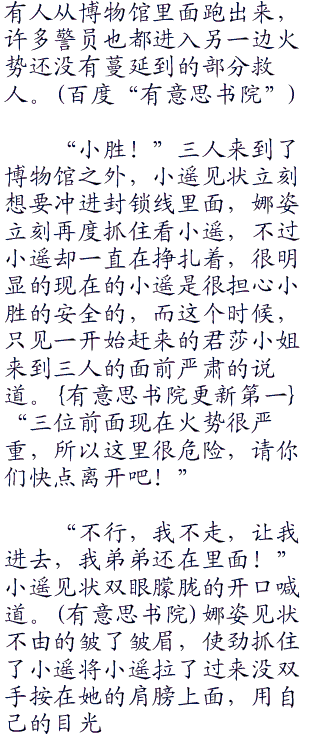 有人从博物馆里面跑出来，
许多警员也都进入另一边火
势还没有蔓延到的部分救
人。(百度“有意思书院”)
“小胜！”三人来到了
博物馆之外，小遥见状立刻
想要冲进封锁线里面，娜姿
立刻再度抓住看小遥，不过
小遥却一直在挣扎着，很明
显的现在的小遥是很担心小
胜的安全的，而这个时候，
只见一开始赶来的君莎小姐
来到三人的面前严肃的说
道。{有意思书院更新第一}
“三位前面现在火势很严
重，所以这里很危险，请你
们快点离开吧！”
“不行，我不走，让我
进去，我弟弟还在里面！”
小遥见状双眼朦胧的开口喊
道。(有意思书院)娜姿见状
不由的皱了皱眉，使劲抓住
了小遥将小遥拉了过来没双
手按在她的肩膀上面，用自
己的目光